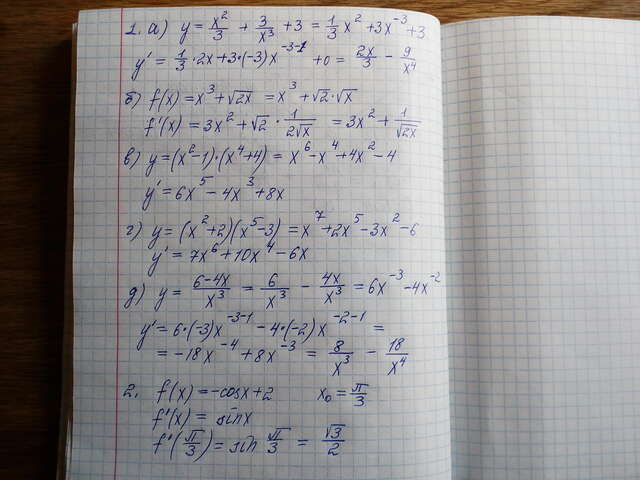 1. а) y = x²/3 + 3/x³ + 3 = 1/3 x² + 3x⁻³ + 3
y' = 1/3 · 2x + 3·(-3)x⁻³⁻¹ + 0 = 2x/3 - 9/x⁴
б) f(x) = x³ + √2x = x³ + √2 · √x
f'(x) = 3x² + √2 · 1/2√x = 3x² + 1/√2x
в) y = (x²-1)·(x⁴+4) = x⁶ - x⁴ + 4x² - 4
y' = 6x⁵ - 4x³ + 8x
г) y = (x²+2)(x⁵-3) = x⁷ + 2x⁵ - 3x² - 6
y' = 7x⁶ + 10x⁴ - 6x
д) y = 6-4x/x³ = 6/x³ - 4x/x³ = 6x⁻³ - 4x⁻²
y' = 6·(-3)x⁻³⁻¹ - 4·(-2)x⁻²⁻¹ =
= -18x⁻⁴ + 8x⁻³ = 8/x³ - 18/x⁴
2. f(x) = -cosx + 2 x₀ = π/3
f'(x) = sinx
f'(π/3) = sin π/3 = √3/2